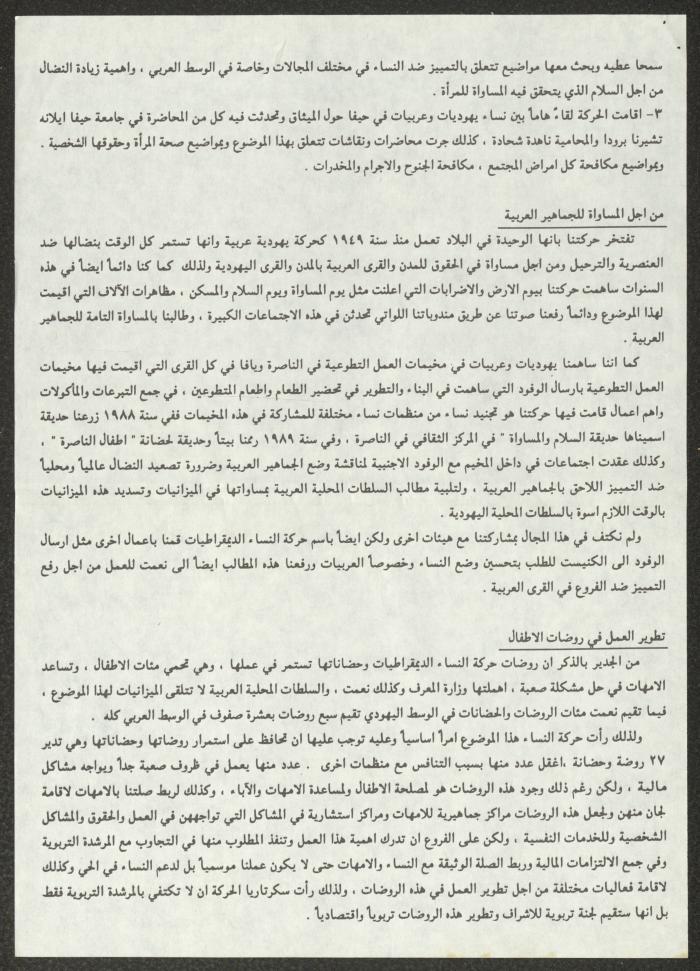 سمحا عطيه وبحث معها مواضيع تتعلق بالتمييز ضد النساء في مختلف المجالات وخاصة في الوسط العربي ، واهمية زيادة النضال
من اجل السلام الذي يتحقق فيه المساواة للمرأة .
٣- اقامت الحركة لقاءً هاماً بين نساء يهوديات وعربيات في حيفا حول الميثاق وتحدثت فيه كل من المحاضرة في جامعة حيفا ايلانه
تشيرنا برودا والمحامية ناهدة شحادة ، كذلك جرت محاضرات ونقاشات تتعلق بهذا الموضوع وبمواضيع صحة المرأة وحقوقها الشخصية .
وبمواضيع مكافحة كل امراض المجتمع ، مكافحة الجنوح والاجرام والمخدرات .
من اجل المساواة للجماهير العربية
تفتخر حركتنا بانها الوحيدة في البلاد تعمل منذ سنة ١٩٤٩ كحركة يهودية عربية وانها تستمر كل الوقت بنضالها ضد
العنصرية والترحيل ومن اجل مساواة في الحقوق للمدن والقرى العربية بالمدن والقرى اليهودية ولذلك كما كنا دائماً ايضاً في هذه
السنوات ساهمت حركتنا بيوم الارض والاضرابات التي اعلنت مثل يوم المساواة ويوم السلام والمسكن ، مظاهرات الآلاف التي اقيمت
لهذا الموضوع ودائماً رفعنا صوتنا عن طريق مندوباتنا اللواتي تحدثن في هذه الاجتماعات الكبيرة ، وطالبنا بالمساواة التامة للجماهير
العربية .
كما اننا ساهمنا يهوديات وعربيات في مخيمات العمل التطوعية في الناصرة ويافا في كل القرى التي اقيمت فيها مخيمات
العمل التطوعية بارسال الوفود التي ساهمت في البناء والتطوير في تحضير الطعام واطعام المتطوعين ، في جمع التبرعات والمأكولات
واهم اعمال قامت فيها حركتنا هو تجنيد نساء من منظمات نساء مختلفة للمشاركة في هذه المخيمات ففي سنة ١٩٨٨ زرعنا حديقة
اسميناها حديقة السلام والمساواة " في المركز الثقافي في الناصرة ، وفي سنة ١٩٨٩ رممنا بيتاً وحديقة لحضانة " اطفال الناصرة " ،
وكذلك عقدت اجتماعات في داخل المخيم مع الوفود الاجنبية لمناقشة وضع الجماهير العربية وضرورة تصعيد النضال عالمياً ومحلياً
ضد التمييز اللاحق بالجماهير العربية ، ولتلبية مطالب السلطات المحلية العربية بمساواتها في الميزانيات وتسديد هذه الميزانيات
بالوقت اللازم اسوة بالسلطات المحلية اليهودية .
ولم نكتف في هذا المجال بمشاركتنا مع هيئات اخرى ولكن ايضاً باسم حركة النساء الديمقراطيات قمنا باعمال اخرى مثل ارسال
الوفود الى الكنيست للطلب بتحسين وضع النساء وخصوصاً العربيات ورفعنا هذه المطالب ايضاً الى نعمت للعمل من اجل رفع
التمييز ضد الفروع في القرى العربية .
تطوير العمل في روضات الاطفال
من الجدير بالذكر ان روضات حركة النساء الديمقراطيات وحضاناتها تستمر في عملها ، وهي تحمي مئات الاطفال ، وتساعد
الامهات في حل مشكلة صعبة ، اهملتها وزارة المعرف وكذلك نعمت ، والسلطات المحلية العربية لا تتلقى الميزانيات لهذا الموضوع ،
فيما تقيم نعمت مئات الروضات والحضانات في الوسط اليهودي تقيم سبع روضات بعشرة صفوف في الوسط العربي كله .
ولذلك رأت حركة النساء هذا الموضوع امراً اساسياً وعليه توجب عليها ان تحافظ على استمرار روضاتها وحضاناتها وهي تدير
٢٧ روضة وحضانة ،اغقل عدد منها بسبب التنافس مع منظمات اخرى . عدد منها يعمل في ظروف صعبة جداً ويواجه مشاكل
مالية ، ولكن رغم ذلك وجود هذه الروضات هو لمصلحة الاطفال ولمساعدة الامهات والآباء ، وكذلك لربط صلتنا بالامهات لاقامة
لجان منهن ولجعل هذه الروضات مراكز جماهيرية للامهات ومراكز استشارية في المشاكل التي تواجههن في العمل والحقوق والمشاكل
الشخصية وللخدمات النفسية ، ولكن على الفروع ان تدرك اهمية هذا العمل وتنفذ المطلوب منها في التجاوب مع المرشدة التربوية
وفي جمع الالتزامات المالية وربط الصلة الوثيقة مع النساء والامهات حتى لا يكون عملنا موسمياً بل لدعم النساء في الحي وكذلك
لاقامة فعاليات مختلفة من اجل تطوير العمل في هذه الروضات ، ولذلك رأت سكرتاريا الحركة ان لا تكتفي بالمرشدة التربوية فقط
بل انها ستقيم لجنة تربوية للاشراف وتطوير هذه الروضات تربوياً واقتصادياً .